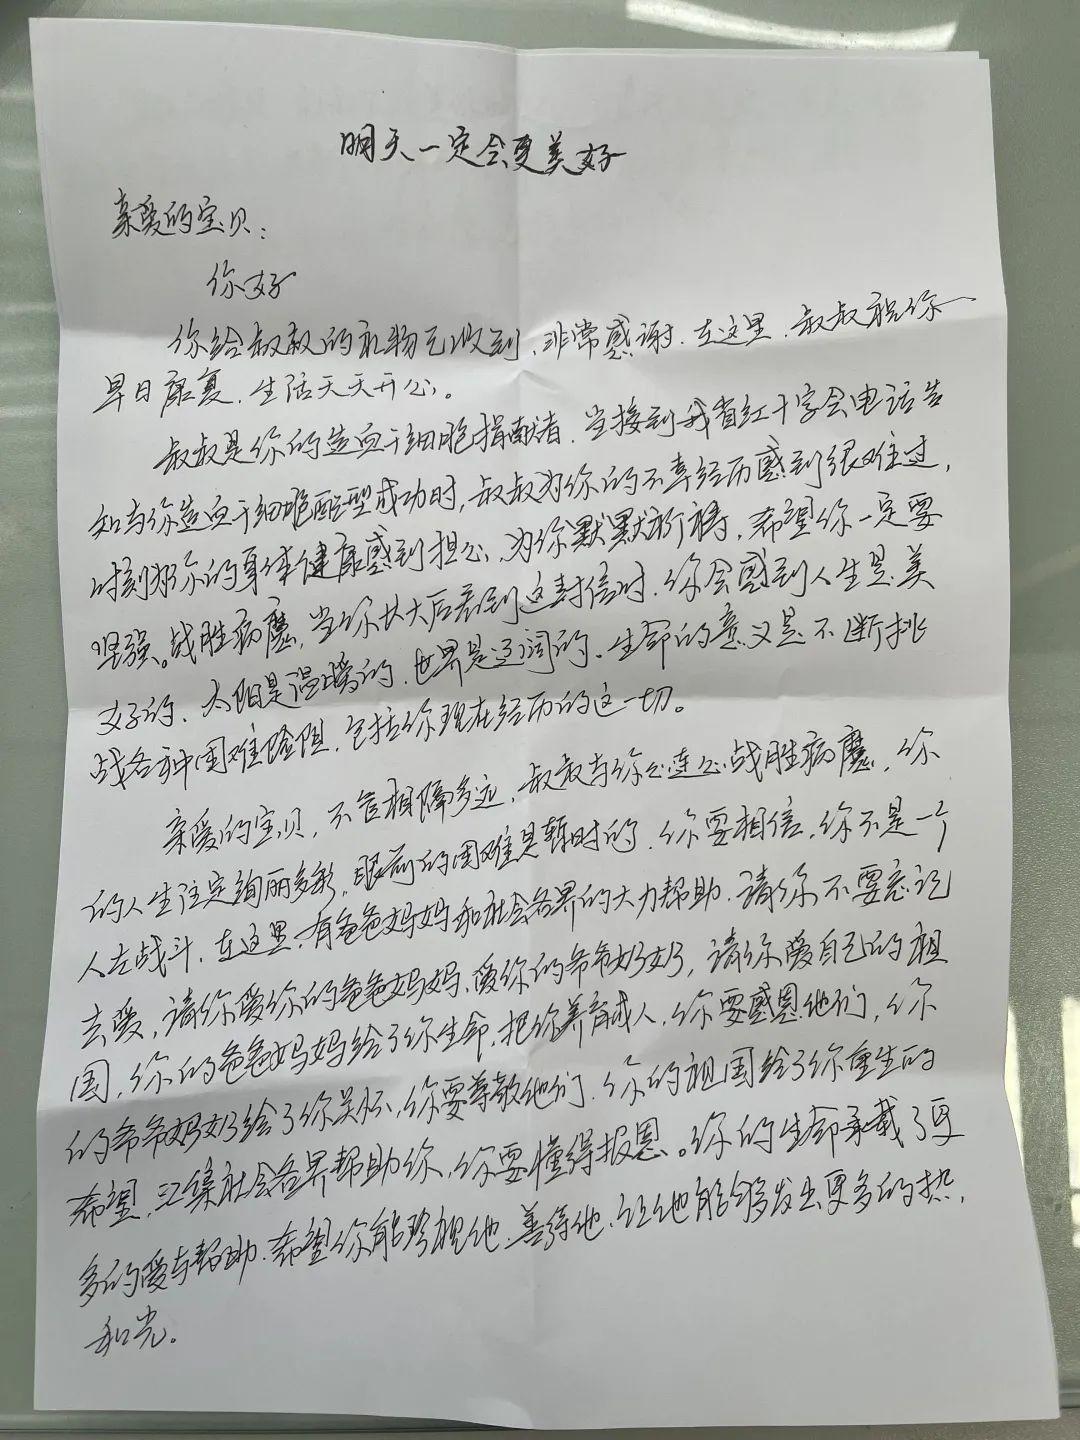 明天一定会更美好
亲爱的宝贝：
你好
你给叔叔的礼物已收到，非常感谢。在这里，叔叔祝你
早日康复，生活天天开心。
叔叔是你的造血干细胞捐献者，当接到我省红十字会电话告
知与你造血干细胞配型成功时，叔叔为你的不幸经历感到很难过，
时刻都你的身体健康感到担心，为你默默祈祷，希望你一定要
坚强。战胜病魔，当你长大后看到这封信时，你会感到人生是美
好的，太阳是温暖的，世界是辽阔的，生命的意义是不断挑
战各种困难险阻，包括你现在经历的这一切。
亲爱的宝贝，不管相隔多远，叔叔与你心连心战胜病魔，你
的人生注定绚丽多彩，眼前的困难是暂时的，你要相信，你不是一个
人在战斗，在这里，有爸爸妈妈和社会各界的大力帮助，请你不要忘记
去爱，请你爱你的爸爸妈妈、爱你的爷爷奶奶，请你爱自己的祖
国，你的爸爸妈妈给了你生命，把你养育成人，你要感恩他们，你
的爷爷奶奶给了你关怀，你要尊敬他们，你的祖国给了你重生的
希望，汇集社会各界帮助你，你要懂得报恩。你的生命承载了更
多的爱与帮助，希望你能珍视他，善待他，让他能够发出更多的热
和光。